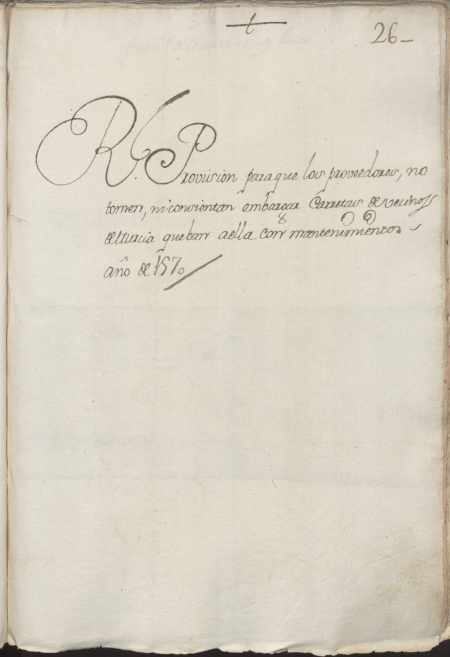 26
Rl. Provision para que los proveedores, no
tomen, ni consientan embargar Carretas de vecinos
de Murcia que ban a ella con mantenimientos
año de 1570